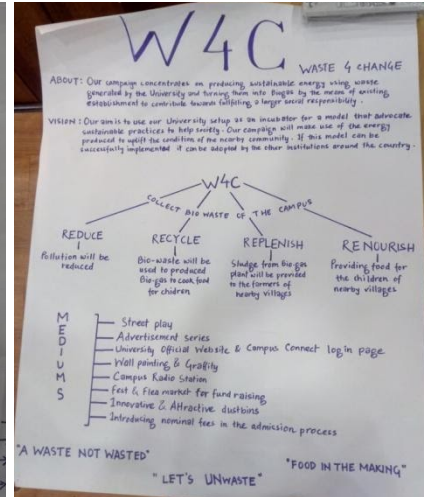 W4C
WASTE 4 CHANGE
ABOUT: Our campaign concentrates on producing sustainable energy using waste
generated by the University and turning them into Biogas by the means of existing
establishment to contribute towards fulfilling a larger social responsibility.
VISION: Our aim is to use our University setup as an incubator for a model that advocate
sustainable practices to help society. Our campaign will make use of the energy
produced to uplift the condition of the nearby community. If this model can be
successfully implemented it can be adopted by the other institutions around the country.
W4C
COLLECT BIO WASTE OF THE CAMPUS
REDUCE
Pollution will be
reduced
RECYCLE
Bio-waste will be
used to produced
Bio-gas to cook food
for chidren
REPLENISH
Sludge from Bio-gas
plant will be provided
to the farmers of
nearby villages
RENOURISH
Providing food for
the children of
nearby villages
MEDIUMS
Street play
Advertisement series
University Official Website & Campus Connect log in page
Wall painting & Grafity
Campus Radio Station
Fest & Flea market for fund raising
Innovative & Attractive dustbins
Introducing nominal fees in the admission process
"A WASTE NOT WASTED"
"LET'S UNWASTE"
"FOOD IN THE MAKING"